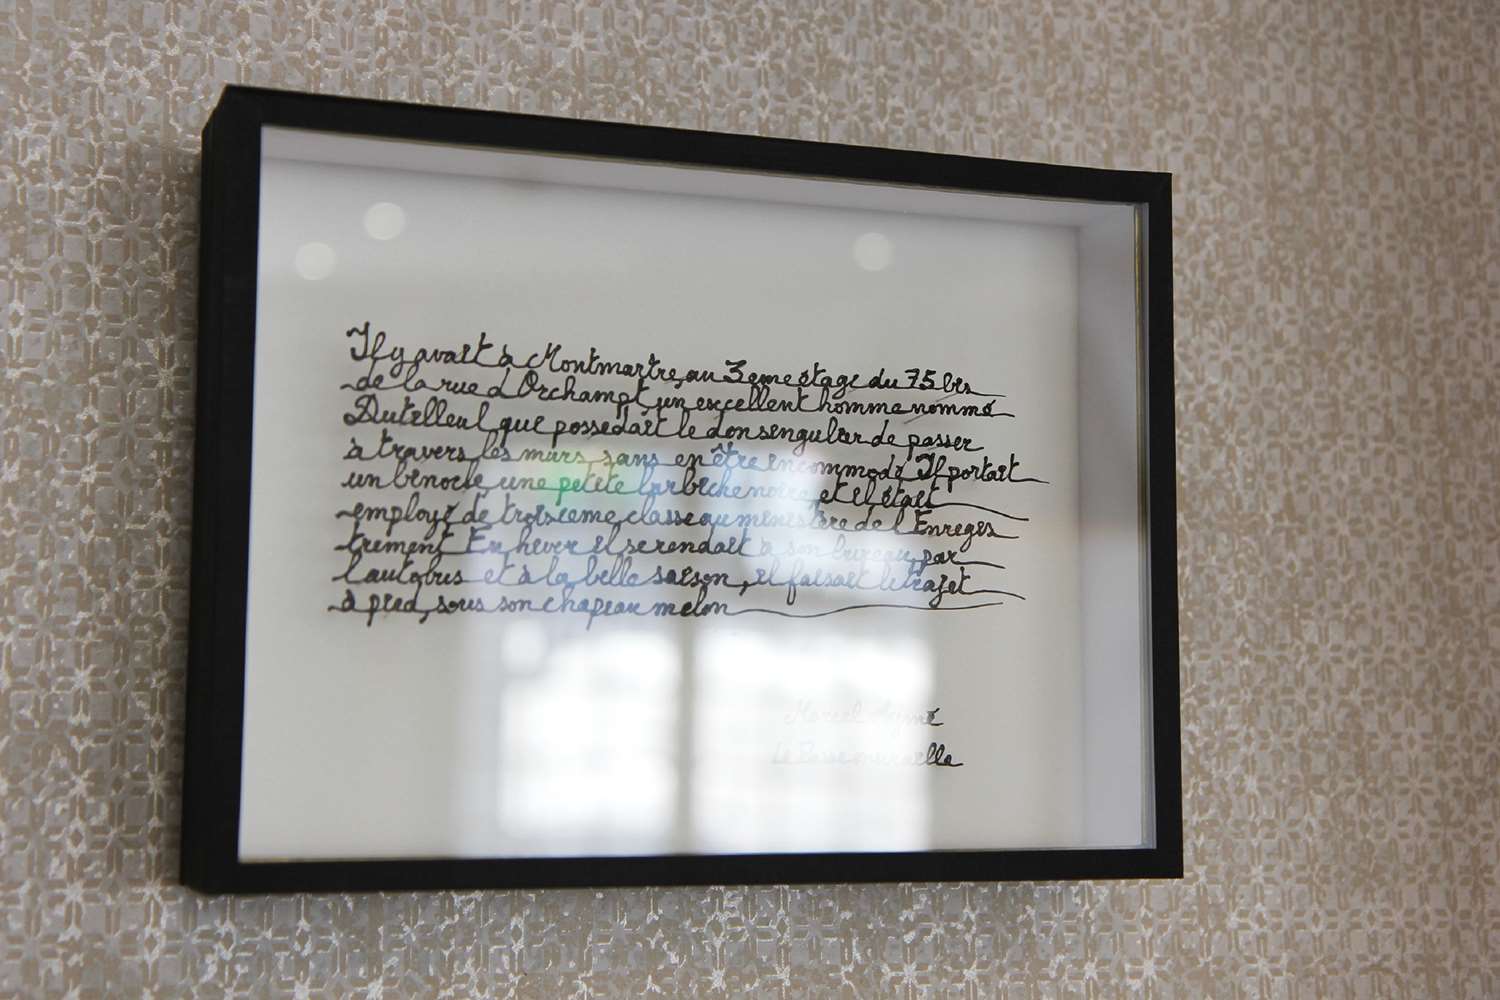 Il y avait à Montmartre, au 3eme étage du 75 bis
de la rue d'Orchampt, un excellent homme nommé
Dutilleul qui possédait le don singulier de passer
à travers les murs, sans en être incommodé. Il portait
un binocle, une petite barbiche noire, et il était
employé de troisieme classe au ministère de l'Enregis
trement. En hiver il se rendait à son bureau par
l'autobus et à la belle saison, il faisait le trajet
à pied, sous son chapeau melon
Marcel Aymé
Le Passe muraille